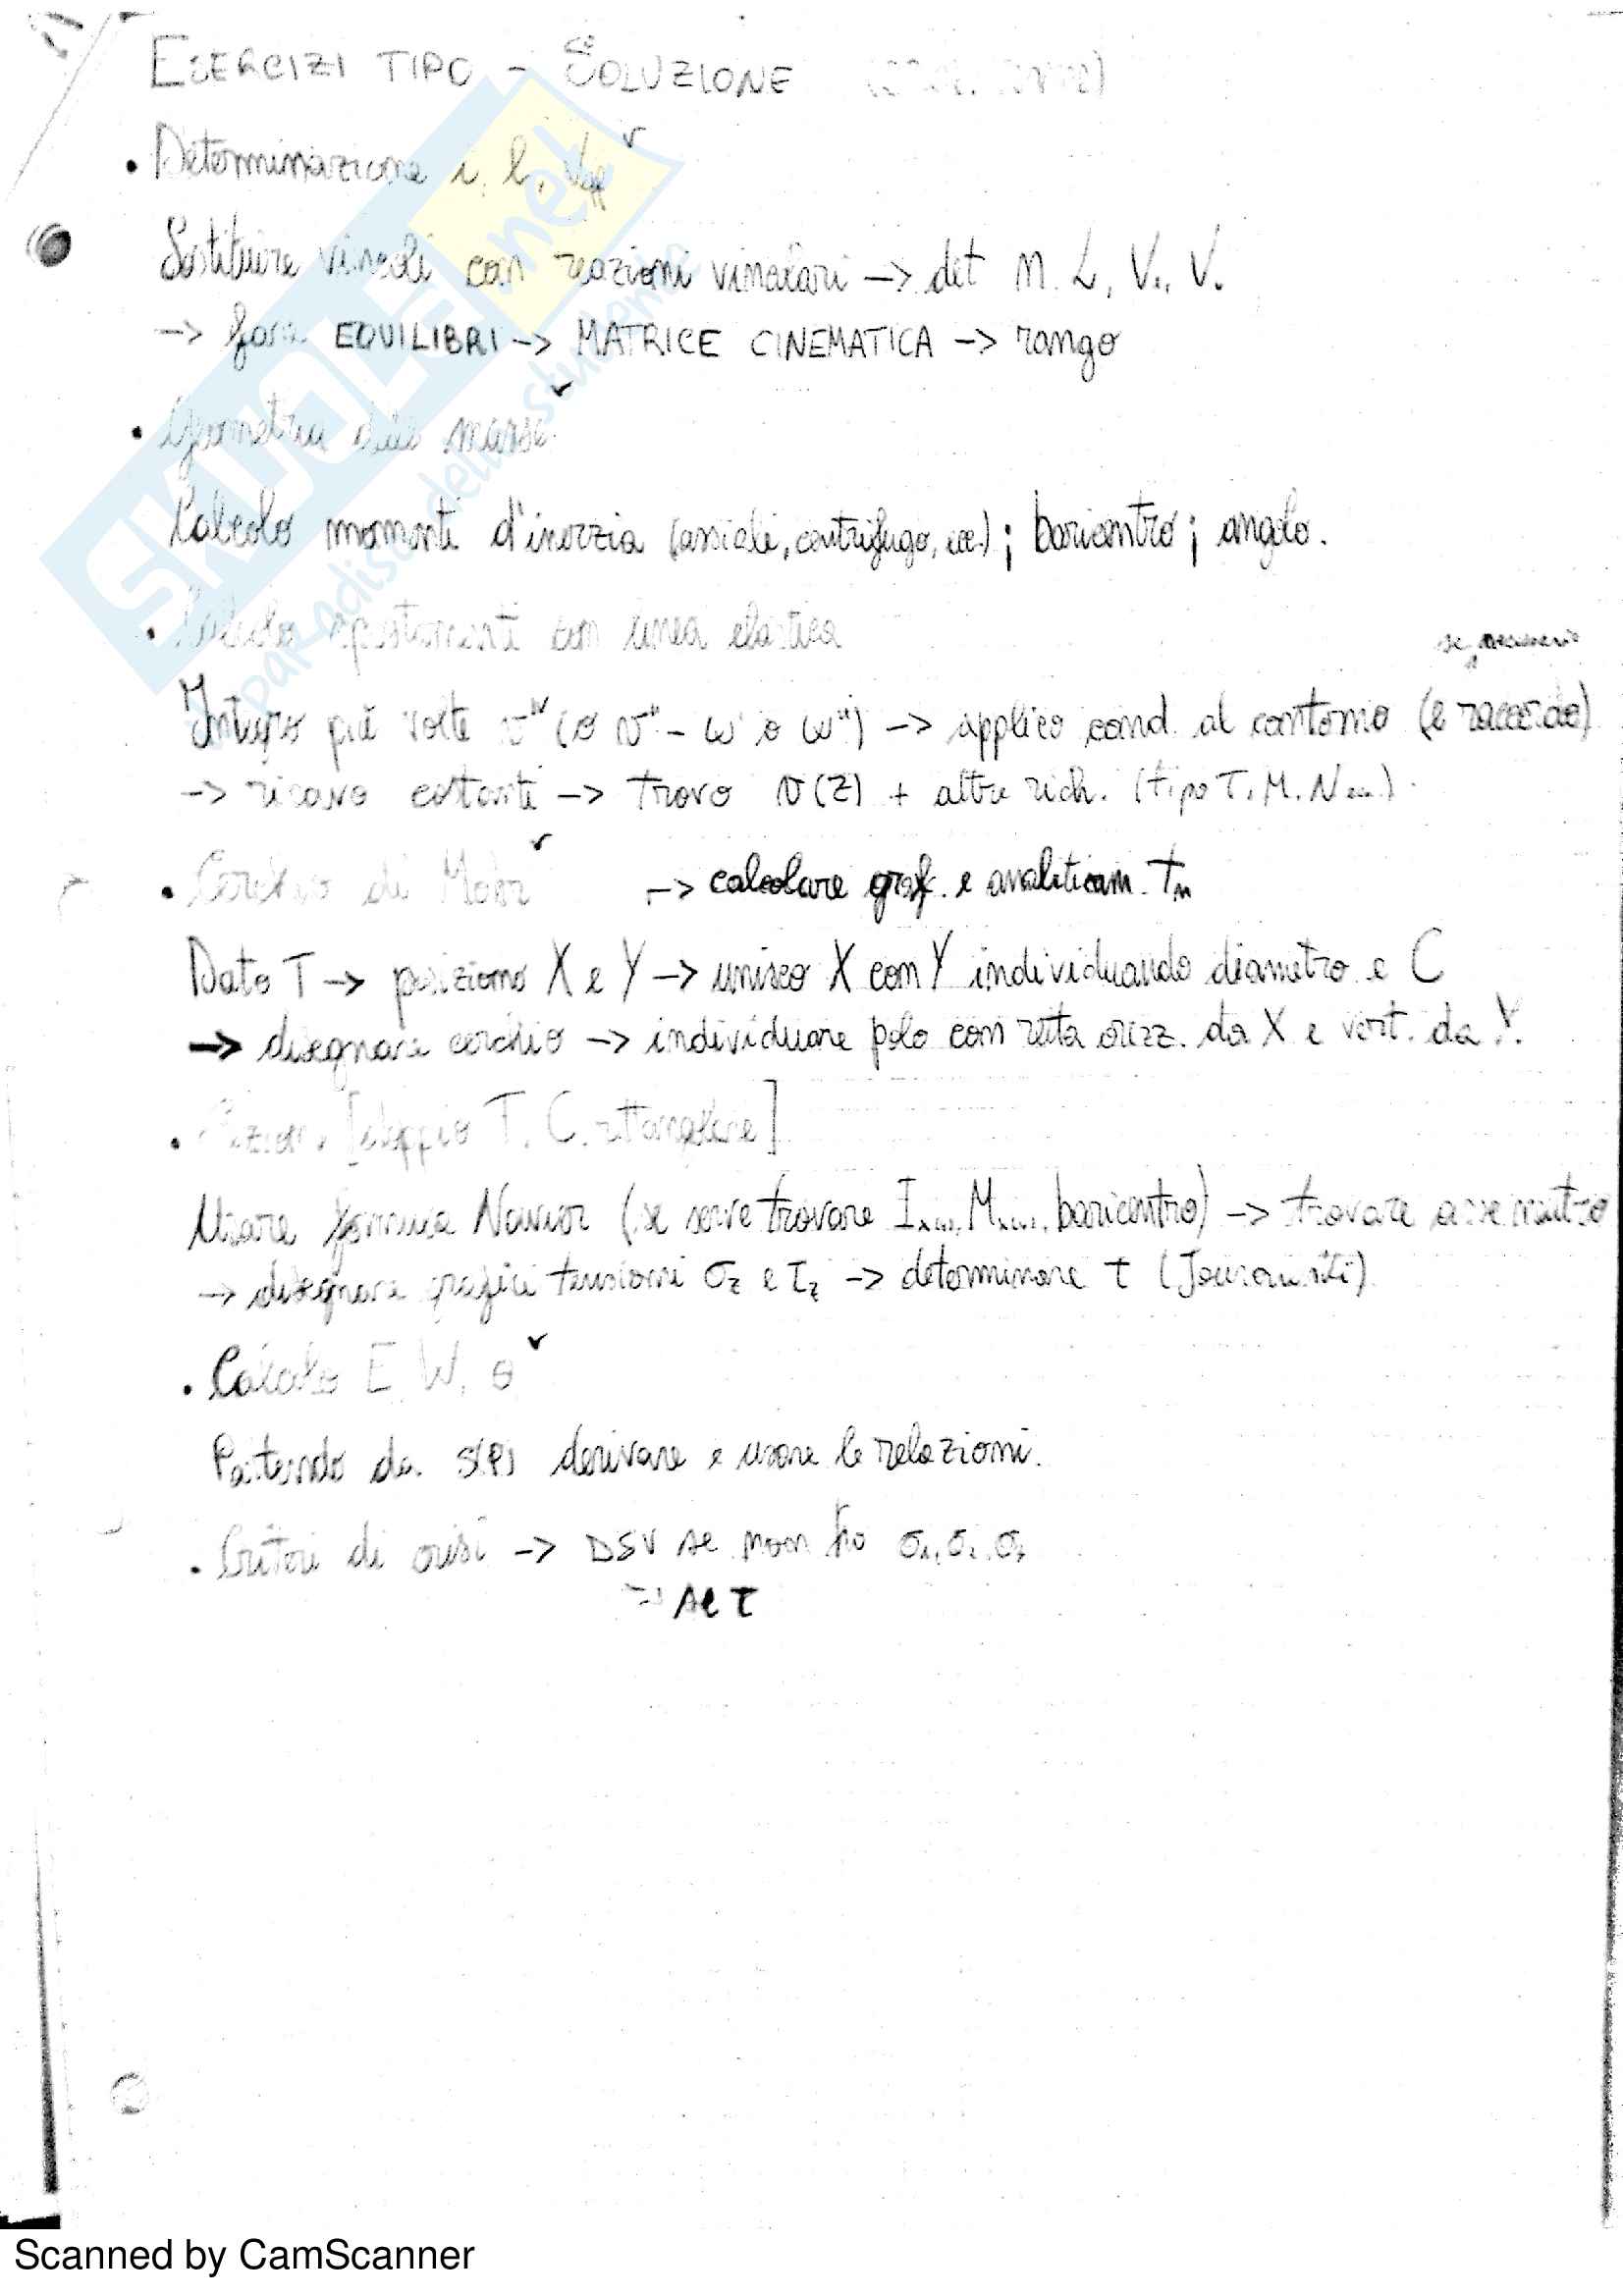 ESERCIZI TIPO - SOLUZIONE
• Determinazione i, l, Veff
Sostituire vincoli con reazioni vincolari -> det n. L, V., V.
-> fare EQUILIBRI -> MATRICE CINEMATICA -> rango
• Geometria delle masse
Calcolo momenti d'inerzia (assiali, centrifugo, ecc.); baricentro; angolo.
• Calcolo spostamenti con linea elastica
se necessario
Integro più volte v'''' (o v'' - w' o w'') -> applico cond. al contorno (e raccordo)
-> ricavo costanti -> trovo v(z) + altre rich. (tipo T, M, N ecc.).
• Cerchio di Mohr -> calcolare graf. e analiticam. tn
Dato T -> posiziono X e Y -> unisco X con Y individuando diametro e C
-> disegnare cerchio -> individuare polo con retta orizz. da X e vert. da Y.
• [doppio T, C, rettangolare]
Usare formula Navier (se serve trovare I, M, baricentro) -> trovare asse neutro
-> disegnare grafici tensioni σz e τz -> determinare τ (Jourawski)
• Calcolo E, W, θ
Partendo da s(P) derivare e usare le relazioni.
• Criteri di crisi -> DSV se non ho σ1, σ2, σ3
se τ
SKUOLA.net
il paradiso dello studente
Scanned by CamScanner